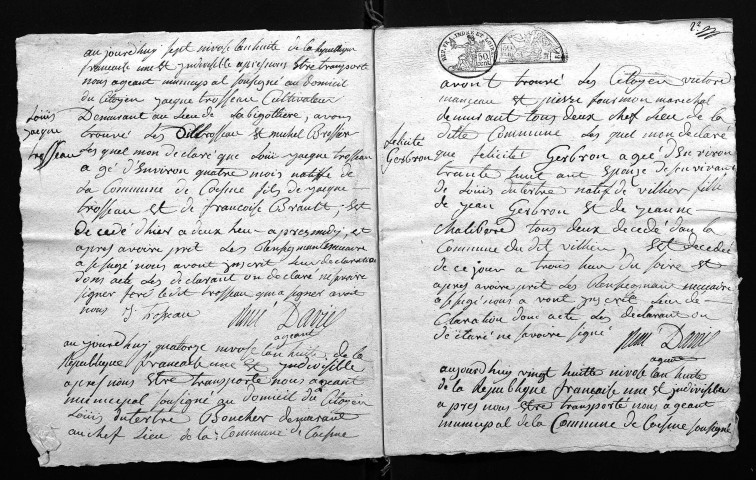 aujourdhuy sept nivose lan huite de la republique
francaise une et jndivisible apres nous Estre transporté
nous ageant municipal sousigné au domicil
du Citoyen jacque trosseau Cultivateur
Demurant au lieu de Labigottiere, avons
Louis jacque trosseau
trouvé Les trosseau et michel Bresson
Les quel mon declaré que Loui jacque trosseau
agé d'Environ quatre mois natife de
La Commune de Coesme fils de jacque
trosseau Et de francoise Brault, Est
de cedé d'hier a deux heur apres midy, et
apres avoire prit Les Ranseignement
a se sujé nous avont jnscrit leur declaration
dons acte Les declarant on declaré ne savoire
signer foré ledit trosseau qui a signer avoit
nous J. troseau
René Davis
ageant
aujourdhuy quatorze nivose lan huite de la
Republique francaise une et jndivisible
apres nous Estre transporté nous ageant
municipal sousigné au domicil du Citoyen
Louis dutertre Boucher demurant
au chef Lieu de la Commune de Coesme
2e
avont trouvé Les Citoyen victore
manceau et pierre fourmon marechal
demurant tous deux chef Lieu de la
ditte Commune Les quel mon declaré
felicité Gerbron
que felicité Gerbron ageé d'Environ
trante huit ans Epouse de son vivant
de Louis dutertre natif de villier fille
de jean Gerbron Et de jeanne
Chalibord tous deux decedé dans la
Commune du dit villier, Est decedée
de ce jour a trois heur du soire et
apres avoire prit Les Renseignemant
a se sujé nous a vont jnscrit Leur de-
Claration dont acte Les declarant on
d'éclaré ne savoire signé
René Davis
ageant
aujourdhuy vingt huitte nivose lan huite
de la Republique francaise une et jndivisible
apres nous Estre transporté nous ageant
municipal de la Commune de Coesme sousigné